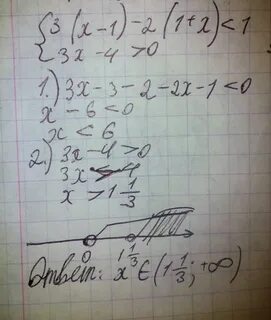 {3(x-1)-2(1+x)<1
3x-4>0
1.)3x-3-2-2x-1<0
x-6<0
x<6
2.)3x-4>0
x>1 1/3
0 1 1/3
Ответ: x∈(1 1/3; +∞)